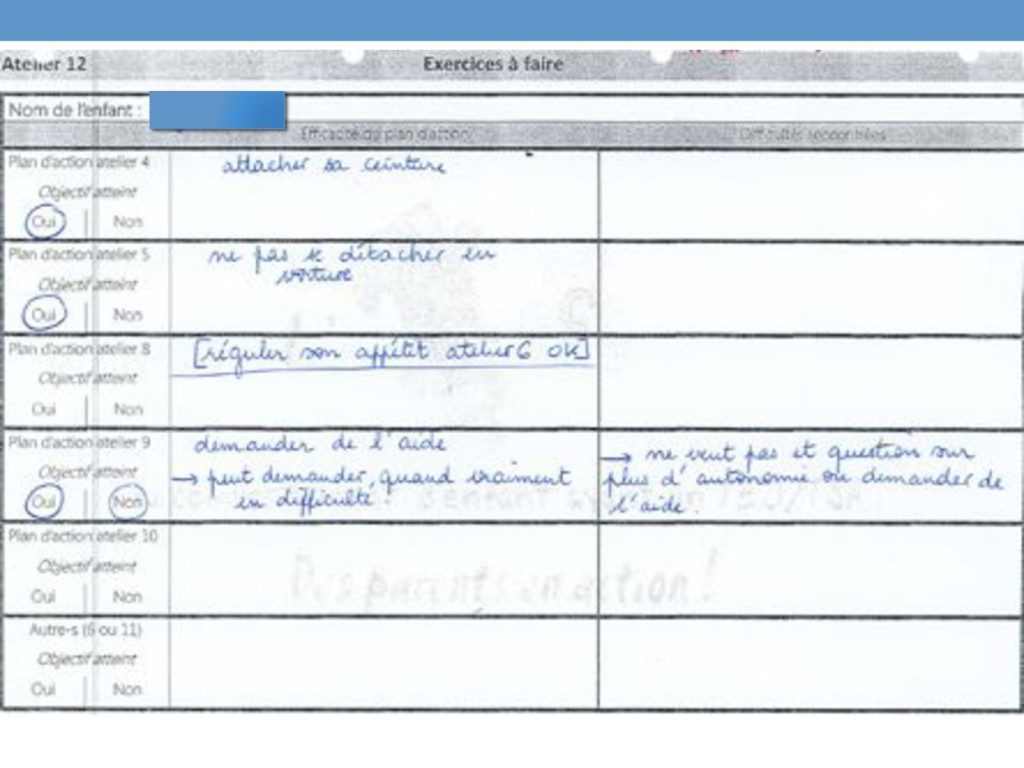 Atelier 12
Exercices à faire
Nom de l'enfant :
Efficacité du plan d'action
Difficultés rencontrées
Plan d'action atelier 4
attacher sa ceinture
Objectif atteint
Oui
Non
Plan d'action atelier 5
ne pas se détacher en
voiture
Objectif atteint
Oui
Non
Plan d'action atelier 8
[réguler son appétit atelier 6 OK]
Objectif atteint
Oui
Non
Plan d'action atelier 9
demander de l'aide
→ ne veut pas et question sur
Objectif atteint
→ peut demander, quand vraiment
plus d'autonomie ou demander de
Oui
Non
en difficulté.
l'aide.
Plan d'action atelier 10
Objectif atteint
Des parents en action !
Oui
Non
Autre-s (6 ou 11)
Objectif atteint
Oui
Non